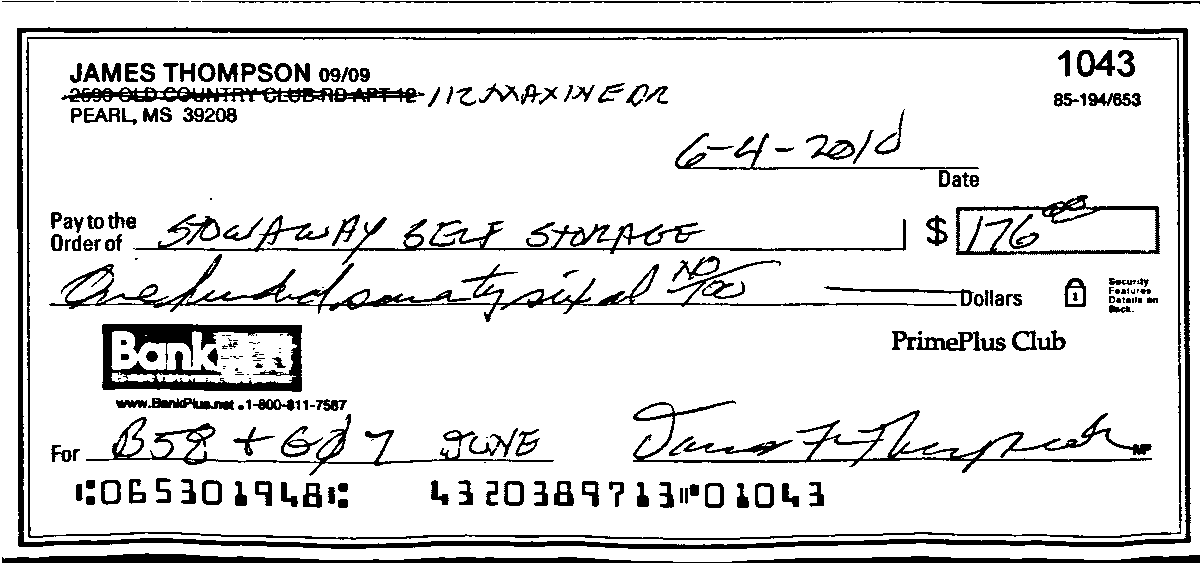 JAMES THOMPSON 09/09
1043
2590 OLD COUNTRY CLUB RD APT 12 112 MAXINE DR
85-194/653
PEARL, MS 39208
6-4-2010
Date
Pay to the Order of STOWAWAY SELF STORAGE $ 176 00
One hundred seventy six and NO/100 Dollars
Security Features Details on Back.
Bank
PrimePlus Club
www.BankPlus.net • 1-800-811-7587
For B58 + G07 JUNE James F Thompson MP
⑆065301948⑆ 4320389713⑈01043